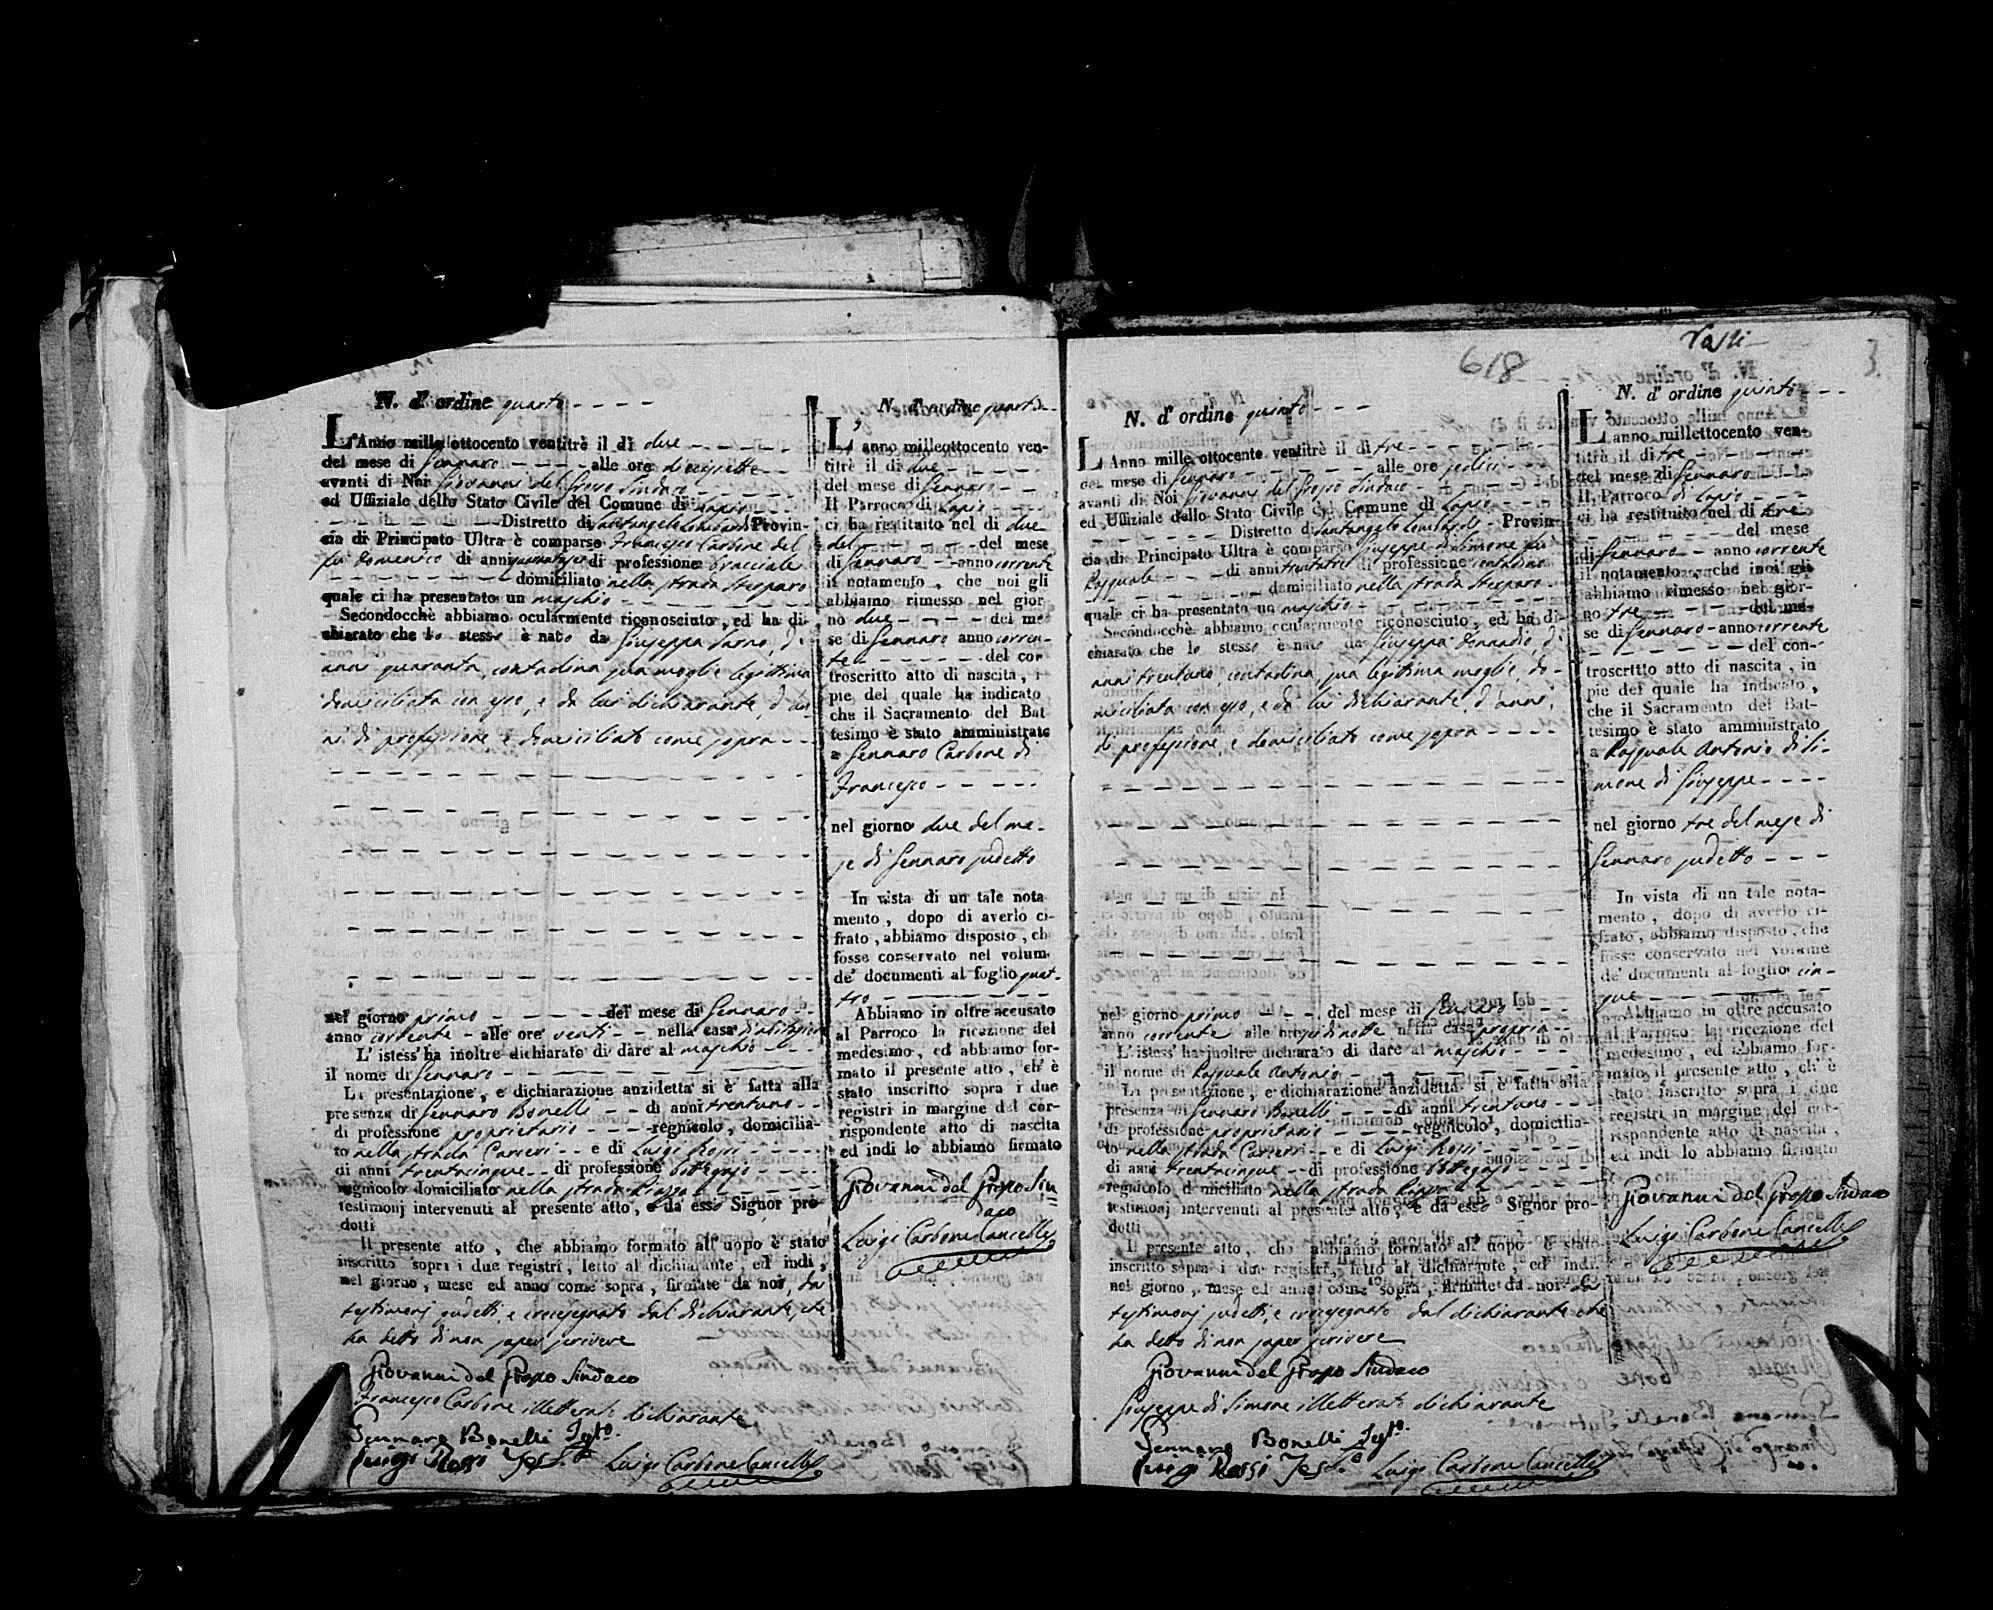 N. d'ordine quarto
L'Anno mille ottocento ventitrè il dì due
del mese di Gennaro alle ore diecisette
avanti di Noi Giovanni del Grosso Sindaco
ed Uffiziale dello Stato Civile del Comune di Lapio
Distretto di Santangelo Lombardi Provin-
cia di Principato Ultra è comparso Francesco Carbone del
fu Domenico di anni di professione bracciale
domiciliato nella strada
quale ci ha presentato un maschio
Secondocchè abbiamo ocularmente riconosciuto, ed ha di-
chiarato che lo stesso è nato da Giuseppa Sarno, d'
anni quaranta, contadina sua moglie legittima
domiciliata con esso, e da lui dichiarante, d'an-
ni di professione e domiciliato come sopra
nel giorno primo del mese di Gennaro
anno corrente alle ore venti nella casa
L'istess' ha inoltre dichiarato di dare al maschio
il nome di Gennaro
La presentazione, e dichiarazione anzidetta si è fatta alla
presenza di Gennaro Bonelli di anni trentuno
di professione proprietario regnicolo, domicilia-
to nella strada Carrieri e di Luigi Rossi
di anni trentacinque di professione bottegajo
regnicolo domiciliato nella strada Piazza
testimonj intervenuti al presente atto, e da esso Signor pro-
dotti
Il presente atto, che abbiamo formato all' uopo è stato
inscritto sopra i due registri, letto al dichiarante, ed indi,
nel giorno, mese ed anno come sopra, firmato da noi, da
testimonj sudetti, e crocesegnato dal dichiarante, che
ha detto di non saper scrivere
Giovanni del Grosso Sindaco
Francesco Carbone illetterato dichiarante
Gennaro Bonelli Testo.
Luigi Rossi Test.o Luigi Carbone Cancelle
N. d'ordine quarto
L'anno milleottocento ven-
titrè il dì due
del mese di Gennaro
Il Parroco di Lapio
ci ha restituito nel dì due
del del mese
di Gennaro anno corrente
il notamento, che noi gli
abbiamo rimesso nel gior-
no due del me-
se di Gennaro anno corren-
te del con-
troscritto atto di nascita, i
pie del quale ha indicato
che il Sacramento del Bat
tesimo è stato amministrato
a Gennaro Carbone di
Francesco
nel giorno due del me-
se di Gennaro sudetto
In vista di un tale nota
mento, dopo di averlo ci-
frato, abbiamo disposto, che
fosse conservato nel volum
de' documenti al foglio quat-
tro
Abbiamo in oltre accusato
al Parroco la ricezione del
medesimo, ed abbiamo for-
mato il presente atto, ch' è
stato inscritto sopra i due
registri in margine del cor-
rispondente atto di nascita
ed indi lo abbiamo firmato
Giovanni del Grosso Sin
daco
Luigi Carbone Cancelle
618
3.
N. d'ordine quinto
L'Anno mille ottocento ventitrè il dì tre
del mese di Gennaro alle ore sedici
avanti di Noi Giovanni del Grosso Sindaco
ed Uffiziale dello Stato Civile del Comune di Lapio
Distretto di Santangelo Lombardi Provin-
cia di Principato Ultra è comparso Giuseppe di Simone fu
Pasquale di anni trentatre di professione contadino
domiciliato nella strada
quale ci ha presentato un maschio
Secondocchè abbiamo ocularmente riconosciuto, ed ha di-
chiarato che lo stesso è nato da Giuseppa Donnadio, d'
anni trentuno, contadina, sua legittima moglie, do-
miciliata con esso, e da lui dichiarante, d'anni,
di professione, e domiciliato come sopra
nel giorno primo del mese di Gennaro
anno corrente alle ore sei di notte nella casa propria
L'istess' ha inoltre dichiarato di dare al maschio
il nome di Pasquale Antonio
La presentazione, e dichiarazione anzidetta si è fatta alla
presenza di Gennaro Bonelli di anni trentuno
di professione proprietario regnicolo, domicilia-
to nella strada Carrieri e di Luigi Rossi
di anni trentacinque di professione bottegajo
regnicolo domiciliato nella strada Piazza
testimonj intervenuti al presente atto, e da esso Signor pro-
dotti
Il presente atto, che abbiamo formato all' uopo è stato
inscritto sopra i due registri, letto al dichiarante, ed indi,
nel giorno, mese ed anno come sopra, firmato da noi da
testimonj sudetti, e crocesegnato dal dichiarante che
ha detto di non saper scrivere
Giovanni del Grosso Sindaco
Giuseppe di Simone illetterato dichiarante
Gennaro Bonelli Testo.
Luigi Rossi Test.o Luigi Carbone Cancelle
N. d'ordine quinto
L'anno millettocento ven-
titrè il dì tre
del mese di Gennaro
Il Parroco di Lapio
ci ha restituito nel dì tre
del mese
di Gennaro anno corrente
il notamento, che noi gli
abbiamo rimesso nel gior-
no tre del me-
se di Gennaro anno corrente
del con-
troscritto atto di nascita, in
pie del quale ha indicato,
che il Sacramento del Bat-
tesimo è stato amministrato
a Pasquale Antonio di Si-
mone di Giuseppe
nel giorno tre del mese di
Gennaro sudetto
In vista di un tale nota-
mento, dopo di averlo ci-
frato, abbiamo disposto, che
fosse conservato nel volume
de' documenti al foglio cin-
que
Abbiamo in oltre accusato
al Parroco la ricezione del
medesimo, ed abbiamo for-
mato il presente atto, ch' è
stato inscritto sopra i due
registri in margine del cor-
rispondente atto di nascita,
ed indi lo abbiamo firmato
Giovanni del Grosso Sindaco
Luigi Carbone Cancelle